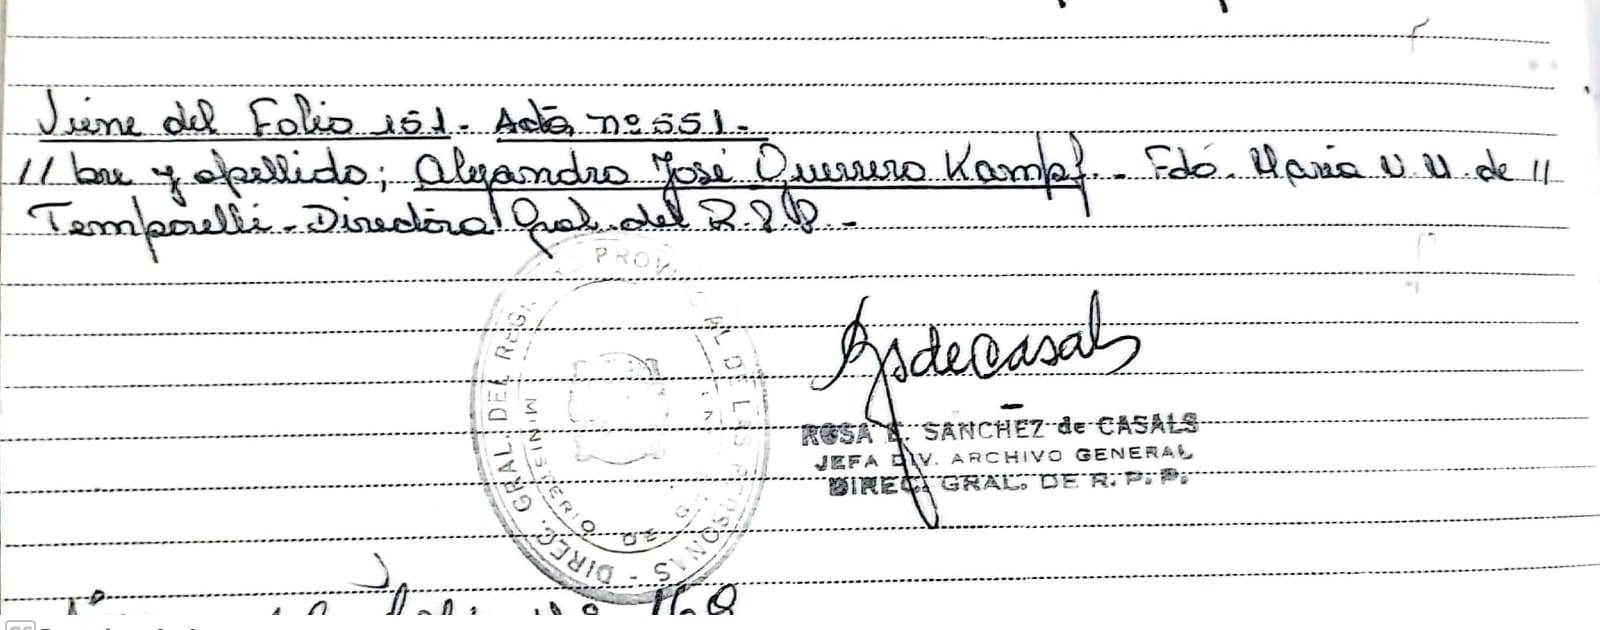 Viene del Folio 151.- Acta nº 551.-
// bre y apellido; Alejandro José Guerrero Kampf.- Fdó. María U. U. de //
Temporelli - Directora Gral. del R.P.P.-
DIREC. GRAL. DEL REG. PROVINCIAL DE LAS PERSONAS
MINISTERIO DE
Rs de Casals
ROSA E. SANCHEZ de CASALS
JEFA DIV. ARCHIVO GENERAL
DIREC. GRAL. DE R. P. P.
nº 168